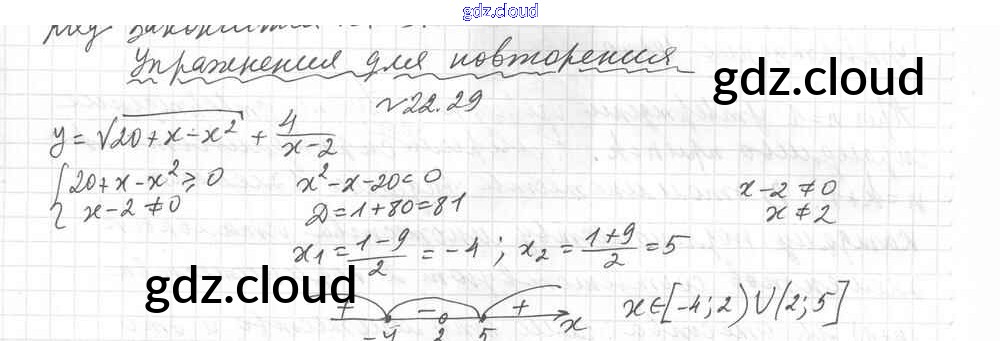 gdz.cloud
Упражнения для повторения
gdz.cloud
№22.29
y = √20+x-x² + 4/(x-2)
{ 20+x-x² ≥ 0 x²-x-20 < 0 x-2 ≠ 0
x-2 ≠ 0 D = 1+80 = 81 x ≠ 2
x₁ = (1-9)/2 = -4 ; x₂ = (1+9)/2 = 5
gdz.cloud
+ - + x x∈[-4;2)∪(2;5]
-4 2 5